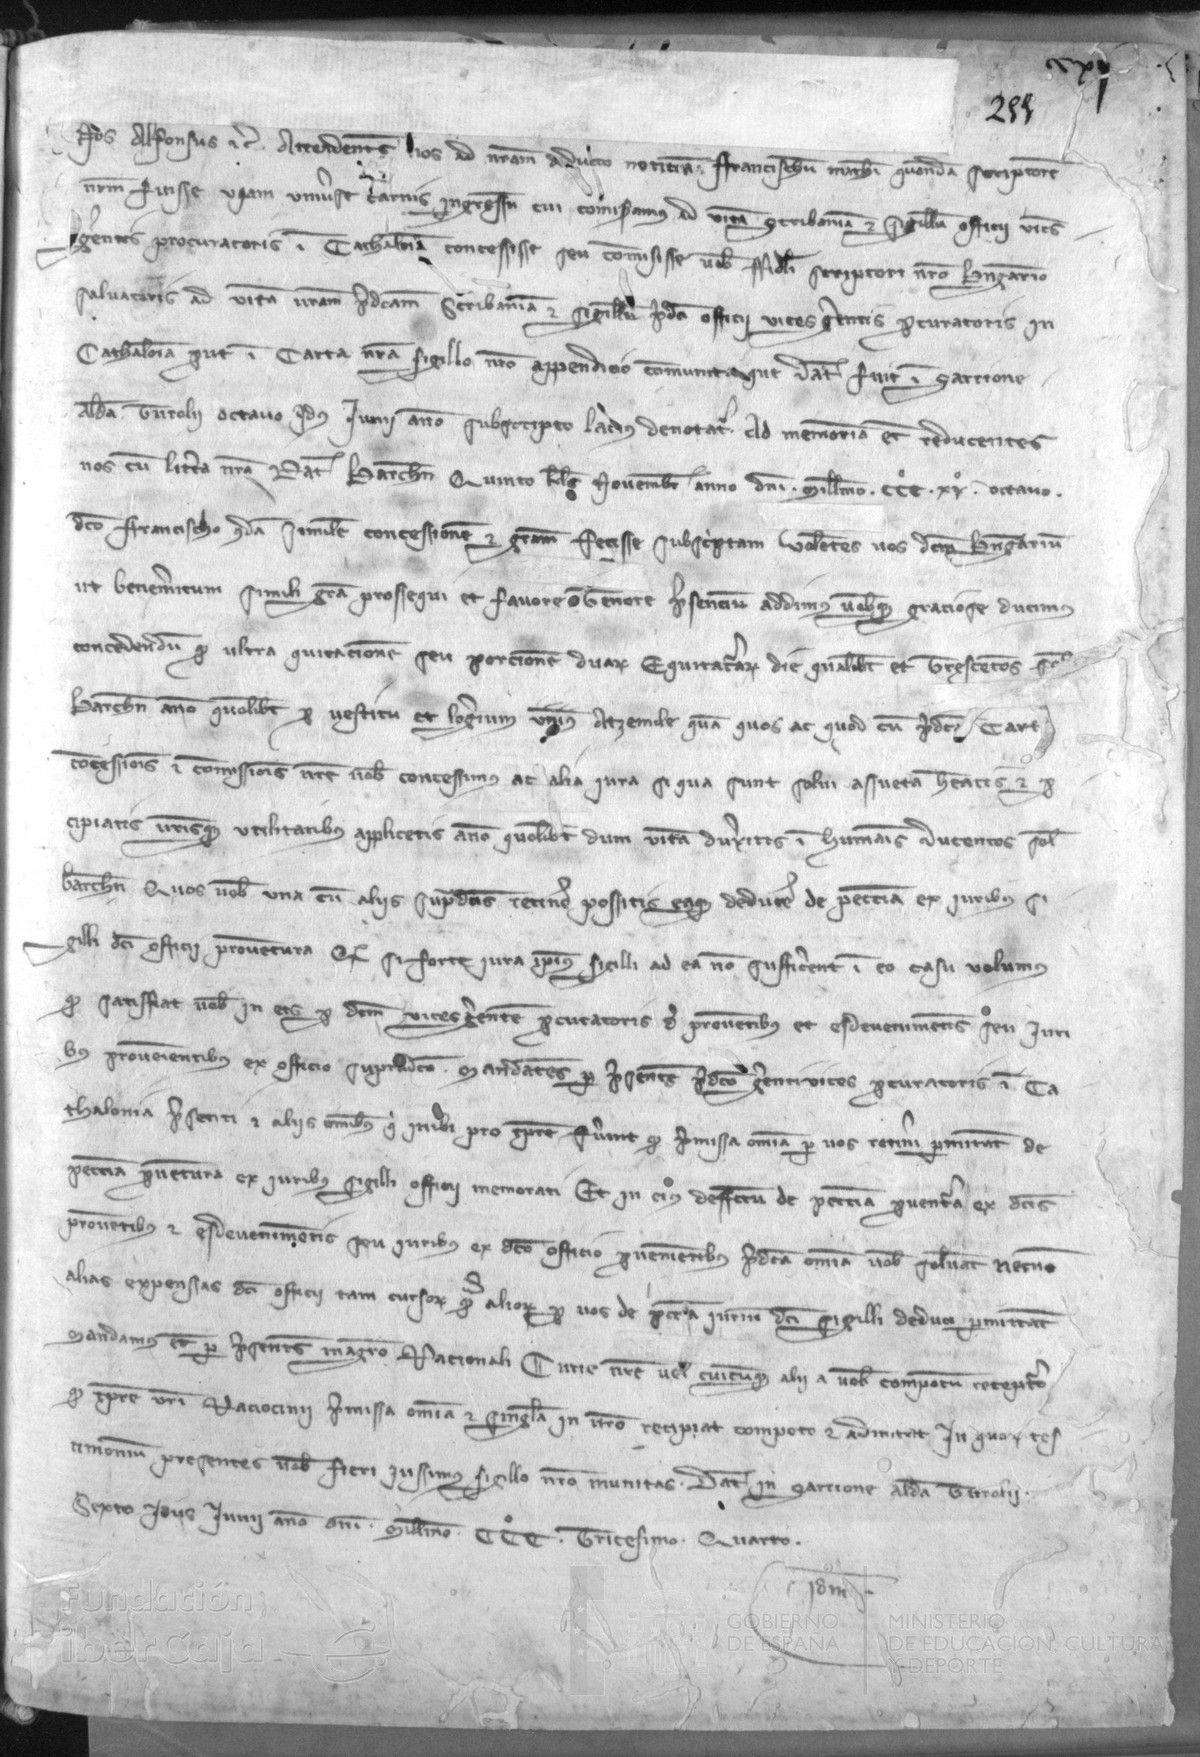 255
Nos Alfonsus etc. Attendentes nos ad nram aducto noticiam Francischum Mathei quondam scriptorem
nrm fuisse viam universe carnis ingressum cui comiseramus ad vitam scribaniam et sigillum officii vices
gerentis procuratoris in Cathalonia concessisse seu comisisse vob fideli scriptori nro Berengario
Salvatoris ad vitam vram predictam scribaniam et sigillum predicti officii vices gerentis procuratoris in
Cathalonia prout in carta nra sigillo nro appendicio comunita que dat fuit in Garcione
aldea Turolii octavo idus Junii anno subscripto lacius denotatur. Ad memoriam etiam reducentes
nos cum littera nra dat Barchn quinto kls Novembr anno dni millmo CCC xx octavo
dco Francischo quondam similem concessionem et gram fecisse subscriptam volentes vos dcm Berengarium
ut benemeritum simili gra prossequi et favore tenore presencium addimus vobisque graciose ducimus
concedendum quod ultra quitacionem seu porcionem duarum equitaturarum die qualibet et trescentos sol
Barchn anno quolibet pro vestitu et logerium unius atzemile quam quos ac quod cum predicta carta
concessionis et comissionis nre vob concessimus ac alia iura si qua sunt solvi assueta habeatis et per
cipiatis vrisque utilitatibus applicetis anno quolibet dum vitam duxeritis in humanis ducentos sol
Barchn quos vob una cum aliis supradictis retinere possitis eaque deducere de peccunia ex iuribus si
gilli dci officii proventura. Et si forte iura ipius sigilli ad ea non sufficerent in eo casu volumus
quod satisfiat vob in eis per dcm vices gerentem procuratoris de proventibus et esdevenimentis seu iuri
bus provenientibus ex officio supradicto. Mandantes per presentem predicto gerentivices procuratoris in Ca
thalonia presenti et aliis omnibus qui inibi pro tempore fuerint quod premissa omnia per vos retineri permittat de
peccunia proventura ex iuribus sigilli officii memorati. Et in eius deffectu de peccunia proventura ex dcis
proventibus et esdevenimentis seu iuribus ex dco officio provenientibus predicta omnia vob solvat necnon
alias expensas dci officii tam cursorum quam aliorum per vos de peccunia iurium dci sigilli deduci permittat
Mandamus etiam per presentes magistro Racionali Curie nre vel cuicumque alii a vob compotum recepturo
quod tempore vri raciocinii premissa omnia et singula in vro recipiat compoto et admittat. In quorum tes
timonium presentes vob fieri iussimus sigillo nro munitas. Dat in Garcione aldea Turolii
Sexto idus Junii anno dni millmo CCC Tricesimo Quarto.
idem
Fundación
iberCaja
GOBIERNO
DE ESPAÑA
MINISTERIO
DE EDUCACIÓN, CULTURA
Y DEPORTE